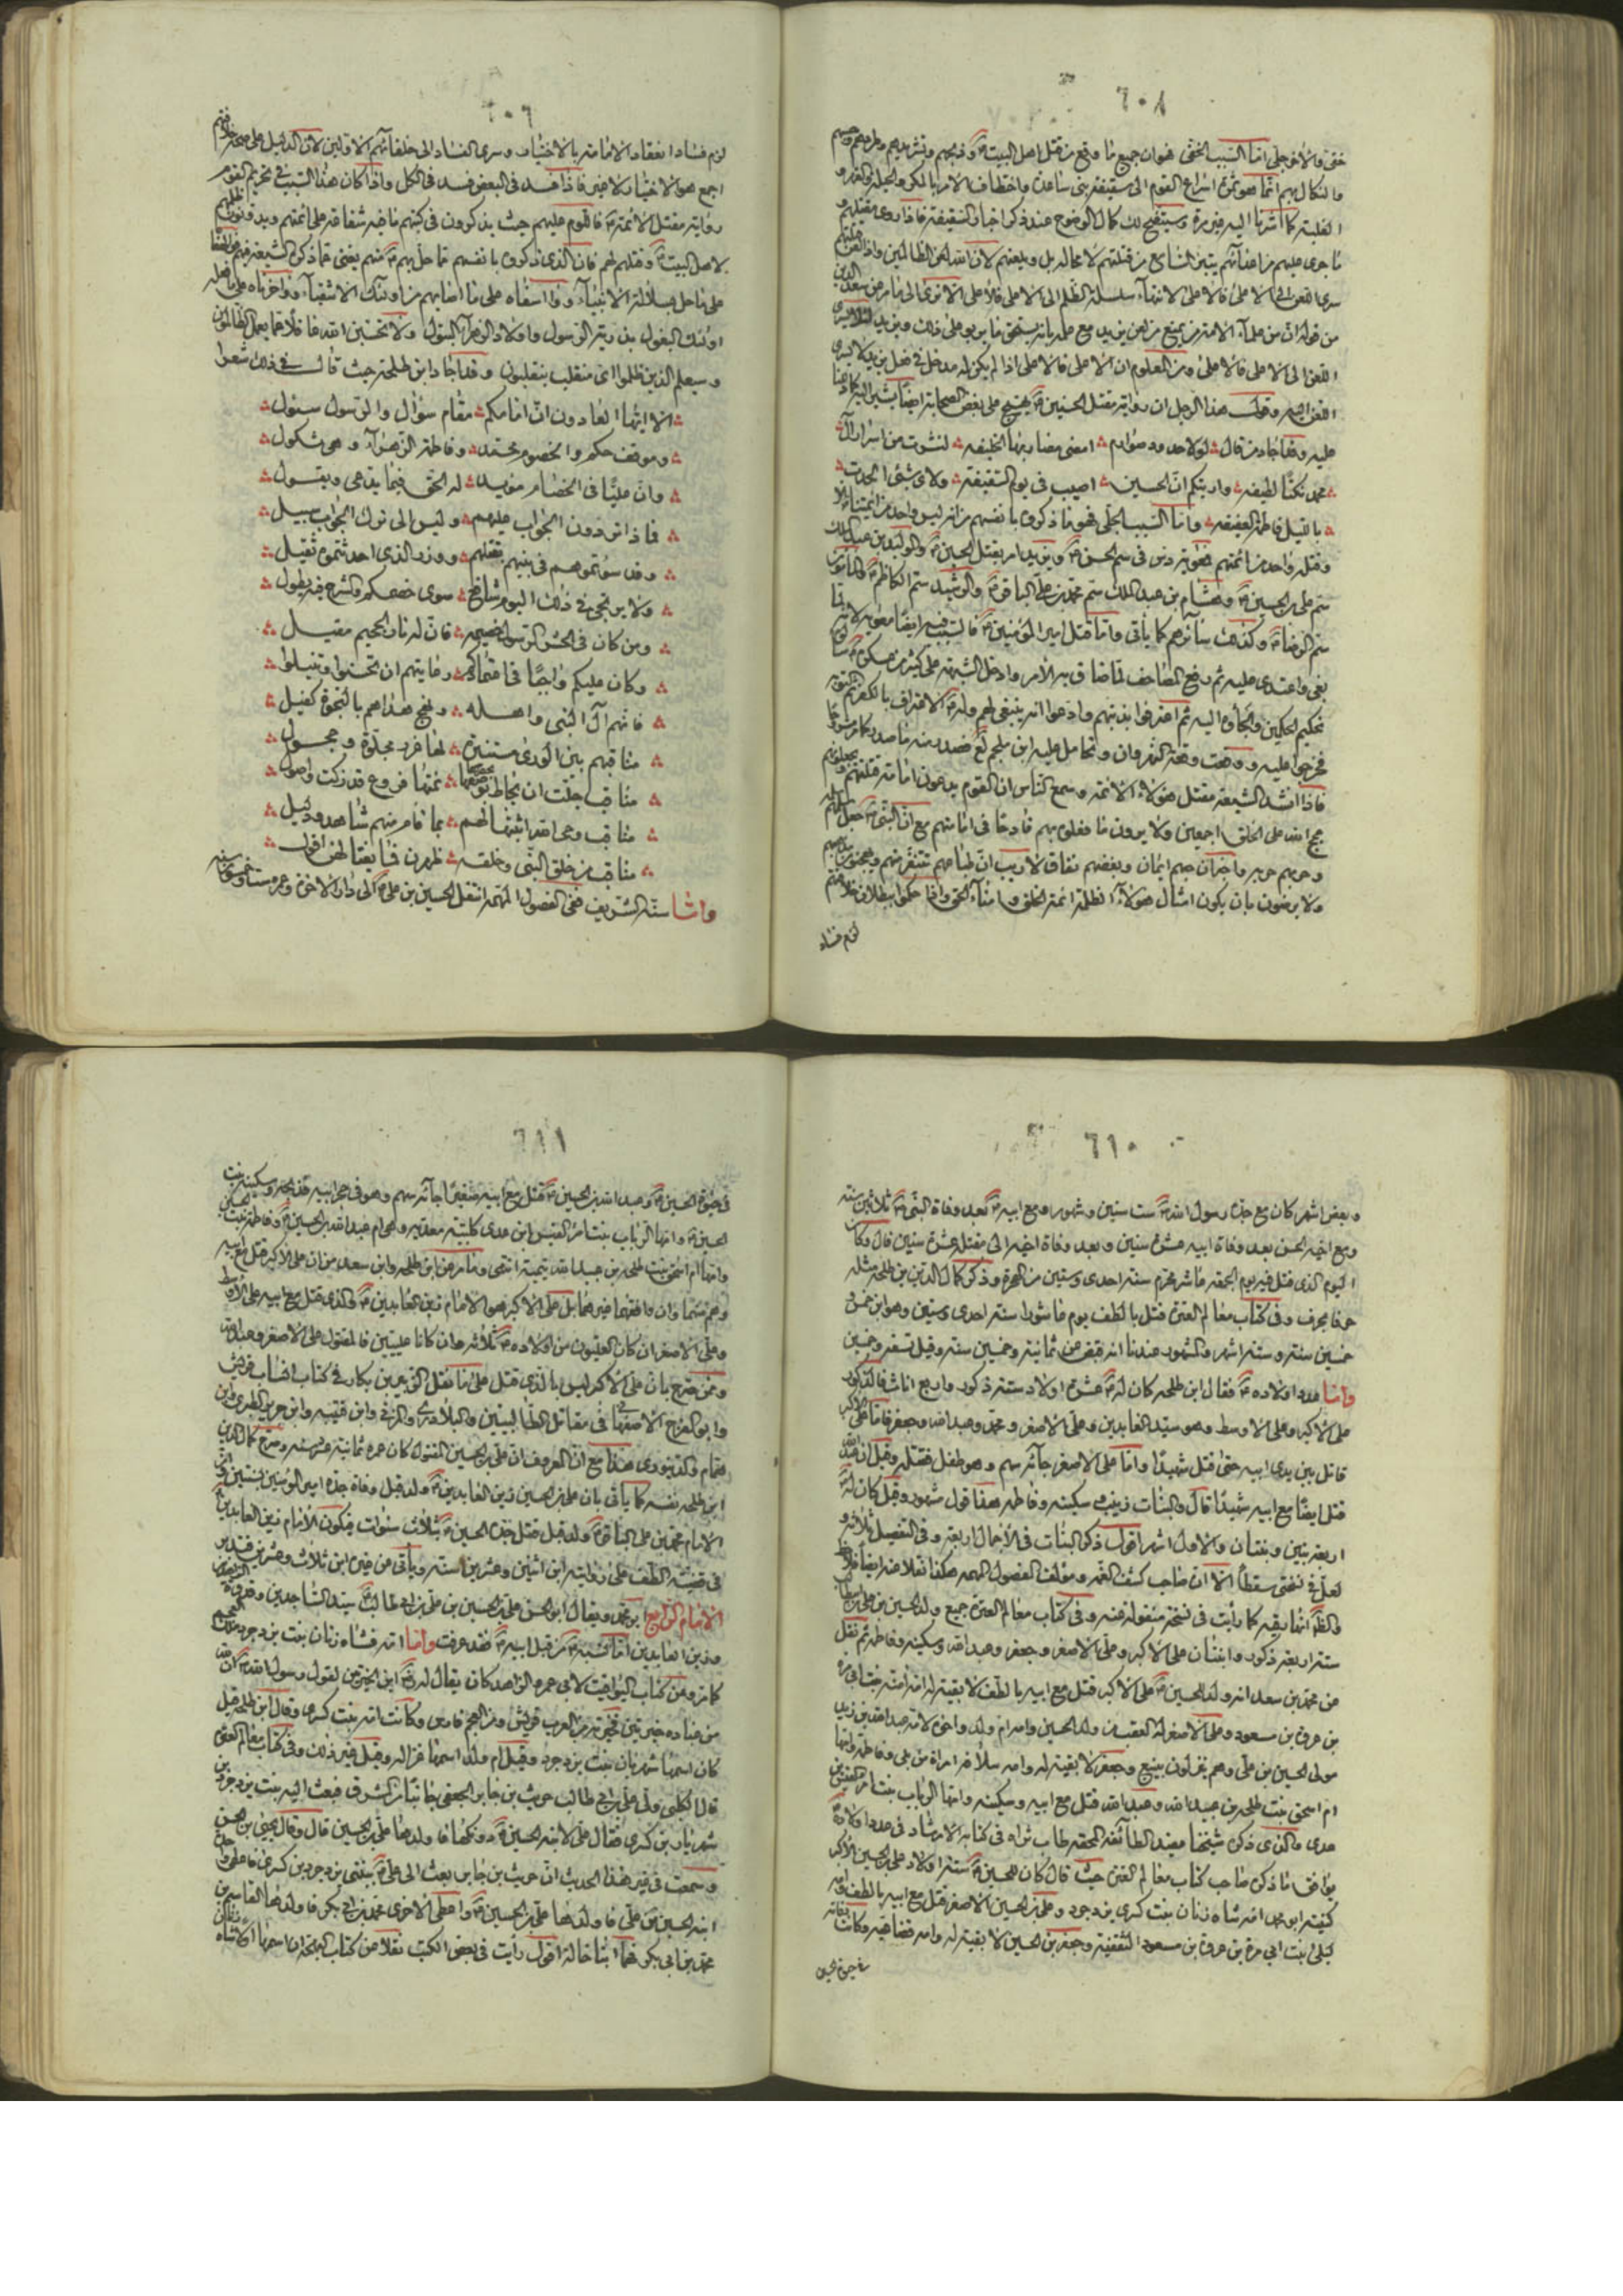 ٦٠٨
خفى والاخر جلى اما السبب الخفى هو ان جميع ما وقع من قتل اهل البيت و ذبحهم وتشريدهم وطردهم وحبسهم
والنكال بهم انما هو ثمرة اسراع القوم الى سقيفة بنى ساعدة واختطاف الامر بالمكر والحيلة والغدر و
الغلبة كما اشرنا اليه غير مرة وسيتضح لك كمال الوضوح عند ذكر اخبار السقيفة فاذا روى مقتلهم و
ما جرى عليهم من اعدائهم يتبين السامع من قتلتهم لا محالة بل ويلعنهم لان الله لعن الظالمين واذا لعن
سرى اللعن الى الاعلى فالاعلى لانتهاء سلسلة الظلم الى الاعلى فالاعلى الا ترى الى ما مر من سعد الدين
من قوله ان من علماء الامة من يمنع من لعن يزيد مع علمه بانه يستحق ما يربو على ذلك ويزيد لئلا يسرى
اللعن الى الاعلى فالاعلى ومن المعلوم ان الاعلى فالاعلى اذا لم يكن له مدخل فى فعل يزيد لا يسرى
اللعن اليه وقول هذا الرجل ان رواية مقتل الحسين يهيج على بغض الصحابة ايضا يشير اليه كما لا يخفى
عليه وقد اجاد من قال لولا حدود صوارم امضى مضاربها الخليفه لنشرت من اسرار آل
محمد نكتا لطيفه واريتكم ان الحسين اصيب فى يوم السقيفة ولاى شئ الحدت
بالليل فاطمة العفيفه واما السبب الجلى فهو ما ذكروه بانفسهم من انه ليس واحد من ائمتنا الا
وقتله واحد من ائمتهم فمعوية دس فى سم الحسن ويزيد امر بقتل الحسين والوليد بن عبد الملك
سم على بن الحسين وهشام بن عبد الملك سم محمد بن على الباقر والرشيد سم الكاظم والمأمون
سم الرضا وكذلك سائرهم كما يأتى واما قتل امير المؤمنين فالسبب فيه ايضا معوية لانه لما
بغى واعتدى عليه ثم رفع المصاحف لما ضاق به الامر وادخل الشبهة على كثير من عسكره
تحكيم الحكمين والجأوه اليه ثم اعترفوا بذنبهم وادعوا انه ينبغى لهم وله الاعتراف بالكفر ثم التوبة
فخرجوا عليه ووقعت وقعة النهروان وتحامل عليه ابن ملجم لع فصدر منه ما صدر كما مر مشروحا
فاذا انشد الشيعة مقتل هؤلاء الائمة وسمع الناس ان القوم يدعون امامة قتلتهم ويجعلونهم
حجج الله على الخلق اجمعين ولا يرون ما فعلوه بهم قادحا فى امامتهم مع ان النبى جعل سلمهم سلمه
وحربهم حربه واخبر ان حبهم ايمان وبغضهم نفاق لا ريب ان طباعهم تتنفر منهم
ولا يرضون بان يكون امثال هؤلاء الظلمة ائمة الخلق وامناء الحق واذا حكموا ببطلان خلافتهم
لزم فساد
٦٠٩
لزم فساد انعقاد الامامة بالاختيار وسرى الفساد الى خلفائهم الاولين لان الدليل على صحة خلافتهم
اجمع هو الاختيار لا غير فاذا فسد فى البعض فسد فى الكل واذا كان هذا السبب فى تحريم القوم
رواية مقتل الائمة فاللوم عليهم حيث يذكرون فى كتبهم ما فيه شقاقه على ائمتهم
لاهل البيت وقتلهم لهم فان الذى ذكروه بانفسهم مما حل بهم منهم يغنى عما ذكره الشيعة
على ما حل بسلالة الانبياء ووا اسفاه على ما اصابهم من اولئك الاشقياء ووا حزناه على ما فعله
اولئك البغول بذرية الرسول واولاد الزهراء البتول ولا تحسبن الله غافلا عما يعمل الظالمون
وسيعلم الذين ظلموا اى منقلب ينقلبون وقد اجاد ابن طلحة حيث قال فى ذلك شعرا
الا ايها العادون ان امامكم مقام سؤال والرسول سئول
وموقف حكم والخصوم محمد وفاطمة الزهراء وهى ثكول
وان عليا فى الخصام مؤيد له الحق فيما يدعى ويقول
فماذا تردون الجواب عليهم وليس الى ترك الجواب سبيل
وقد سؤتموهم فى بنيهم بقتلهم ووزر الذى احدثتموه ثقيل
ولا يرتجى فى ذلك اليوم شافع سوى خصمكم والشرح فيه يطول
ومن كان فى الحشر الرسول خصيمه فان له نار الجحيم مقيل
وكان عليكم واجبا فى اعتمادكم رعايتهم ان تحسنوا وتنيلوا
فانهم آل النبى واهله ونهج هداهم بالنجاة كفيل
مناقبهم بين الورى مستنيرة لها غرر مجلوة وحجول
مناقب جلت ان يحاط بحصرها نمتها فروع قد زكت واصول
مناقب وحى الله اثبتها لهم بما قام منهم شاهد ودليل
مناقب من خلق النبى وخلقه ظهرن فما يغتالهن افول
واما سنه الشريف ففى الفصول المهمة انتقل الحسين بن على الى دار الاخرة وعمره ست وخمسون سنة
٦١٠
وبعض اشهر كان مع جده رسول الله ست سنين وشهورا ومع ابيه بعد وفاة النبى ثلاثين سنة
ومع اخيه الحسن بعد وفاة ابيه عشر سنين وبعد وفاة اخيه الى مقتله عشر سنين قال وكان
اليوم الذى قتل فيه يوم الجمعة عاشر محرم سنة احدى وستين من الهجرة وذكر كمال الدين بن طلحة مثله
حرفا بحرف وفى كتاب معالم العترة قتل بالطف يوم عاشورا سنة احدى وستين وهو ابن خمس و
خمسين سنة وستة اشهر والمشهور عندنا انه قبض عن ثمانية وخمسين سنة وقيل تسعة وخمسين
واما عدد اولاده فقال ابن طلحه كان له عشرة اولاد ستة ذكور واربع اناث فالذكور
على الاكبر وعلى الاوسط وهو سيد العابدين وعلى الاصغر ومحمد وعبد الله وجعفر فاما على الاكبر
قاتل بين يدى ابيه حتى قتل شهيدا واما على الاصغر جآئه سهم وهو طفل فقتله وقيل ان عبد الله
قتل ايضا مع ابيه شهيدا قال والبنات زينب وسكينه وفاطمه هذا قول مشهور وقيل كان له
اربعة بنين وبنتان والاول اشهر اقول ذكر البنات فى الاجمال اربعة وفى التفصيل ثلاثة و
لعل فى نسختى سقطا الا ان صاحب كشف الغمة ومؤلف الفصول المهمه هكذا نقلا عنه ايضا
والظ انها بقيه كما رأيت فى نسخة منقولة عنه وفى كتاب معالم العترة جميع ولد الحسين بن على بن ابيطالب
ستة اربعة ذكور وابنتان على الاكبر وعلى الاصغر وجعفر وعبد الله وسكينه وفاطمة ثم نقل
عن محمد بن سعد انه ولد للحسين على الاكبر قتل مع ابيه بالطف لا بقية له امه آمنة بنت ابى مرة
بن عروة بن مسعود وعلى الاصغر له العقب من ولد الحسين وامه ام ولد واخوه لامه عبد الله بن زبيد
مولى الحسين بن على وهم ينزلون بينبع وجعفر لا بقية له وامه سلافة امرأة من بلى وفاطمة وامها
ام اسحق بنت طلحة بن عبيد الله وعبد الله قتل مع ابيه وسكينه وامها الرباب بنت امرء القيس بن
عدى والذى ذكره شيخنا مفيد الطائفة المحقة طاب ثراه فى كتابه الارشاد فى عدد اولاده
يوافق ما ذكره صاحب كتاب معالم العترة حيث قال كان للحسين ستة اولاد على بن الحسين الاكبر
كنيته ابو محمد امه شاه زنان بنت كسرى يزدجرد وعلى بن الحسين الاصغر قتل مع ابيه بالطف وامه
ليلى بنت ابى مرة بن عروة بن مسعود الثقفية وجعفر بن الحسين لا بقية له وامه قضاعية وكانت وفاته
فى حيوة الحسين
٦١١
فى حيوة الحسين وعبد الله بن الحسين قتل مع ابيه صغيرا جآئه سهم وهو فى حجر ابيه فذبحه وسكينة بنت
الحسين وامها الرباب بنت امرء القيس ابن عدى كلبية معدية وهى ام عبد الله بن الحسين وفاطمة بنت الحسين
وامها ام اسحق بنت طلحة بن عبيد الله تيمية انتهى وما مر من ابن طلحه وابن سعد من ان على الاكبر قتل مع ابيه
وهم منهما وان وافقهما غيرهما بل على الاكبر هو الامام زين العابدين والذى قتل مع ابيه على الاوسط
وعلى الاصغر ان كان العليون من اولاده ثلاثة وان كانا عليين فالمقتول على الاصغر وعبد الله
وممن صرح بان على الاكبر ليس بالذى قتل على ما نقل الزبير بن بكار فى كتاب انساب قريش
وابو الفرج الاصفهانى فى مقاتل الطالبيين والبلاذرى والمزنى وابن قتيبه وابن جرير الطبرى وابن
همام والدينورى هذا مع ان المعروف ان على بن الحسين المقتول كان عمره ثمانية عشر سنه وصرح كمال الدين
ابن طلحه نفسه كما يأتى بان على بن الحسين زين العابدين ولد قبل وفاة جده امير المؤمنين بسنتين
الامام محمد بن على الباقر ولد قبل قتل جده الحسين بثلاث سنوات فيكون الامام زين العابدين
فى قضية الطف على روايته ابن اثنين وعشرين سنة ويأتى من غيره ابن ثلاث وعشرين
الامام الرابع ابو محمد ويقال ابو الحسن على بن الحسين بن على بن ابى طالب سيد الساجدين وقدوة
وزين العابدين اما نسبه من قبل ابيه فقد عرفت واما امه فشاه زنان بنت يزدجرد ملك العجم
كما مر وعن كتاب اليواقيت لابى عمر الزاهد كان يقال له ابن الخيرتين لقول رسول الله ان لله
من عباده خيرتين فخيرته من العرب قريش ومن العجم فارس وكانت امه بنت كسرى وقال ابن طلحه قيل
كان اسمها شهربان بنت يزدجرد وقيل ام ولد اسمها غزاله وقيل غير ذلك وفى كتاب معالم العترة
قال الكلبى ولى على بن ابى طالب حريث بن جابر الجعفى جانبا من المشرق فبعث اليه بنت يزدجرد بن
شهريار بن كسرى فقال على لابنه الحسين دونكها فاولدها على بن الحسين قال وقال يحيى بن الحسن
وسمعت فى غير هذا الحديث ان حريث بن جابر بعث الى على ببنتى يزدجرد بن كسرى فاعطى واحدة
ابنه الحسين بن على فاولدها على بن الحسين واعطى الاخرى محمد بن ابى بكر فاولدها القاسم بن
محمد بن ابى بكر فهما ابنا خالة اقول رأيت فى بعض الكتب نقلا عن كتاب